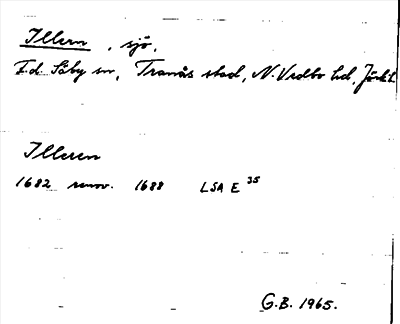 Illern, sjö,
F.d. Säby sn, Tranås stad, N. Vedbo hd, Jönk.l.
Illeren
1682 renov. 1688 LSA E 35
G.B. 1965.